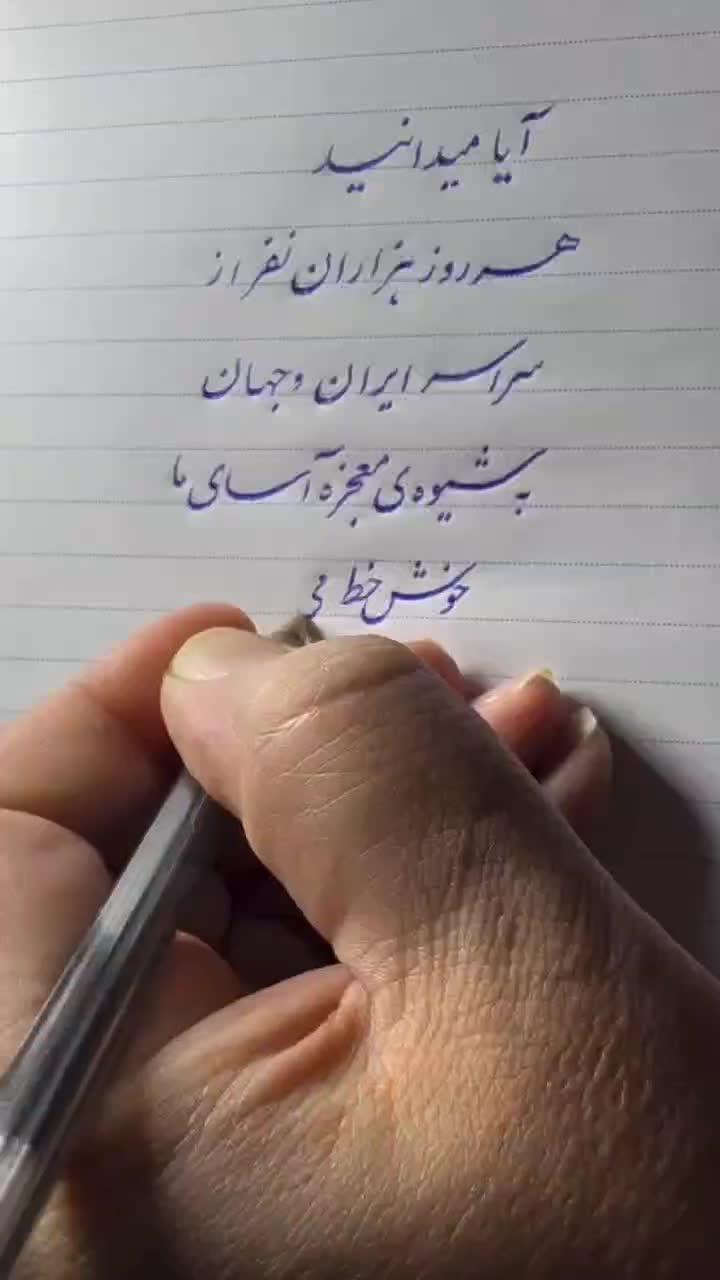 آیا میدانید
هر روز هزاران نفر از
سراسر ایران و جهان
به شیوه‌ی معجزه آسای ما
خوش خط می